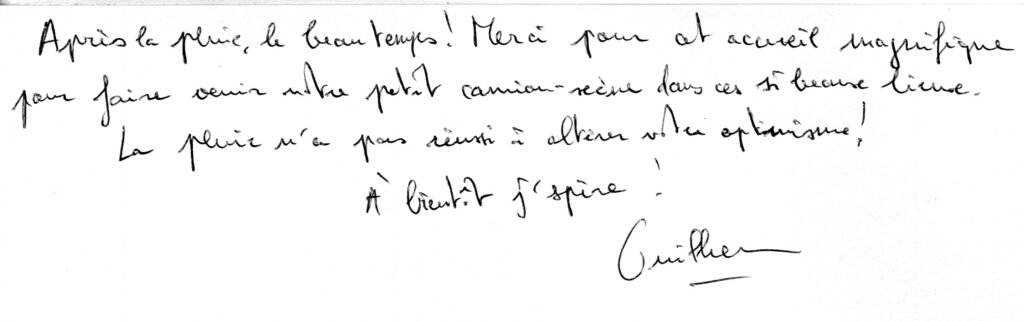 Après la pluie, le beau temps! Merci pour cet accueil magnifique
pour faire venir notre petit camion-scène dans ces si beaux lieux.
La pluie n'a pas réussi à altérer votre optimisme!
À bientôt j'spère!
Guilhem